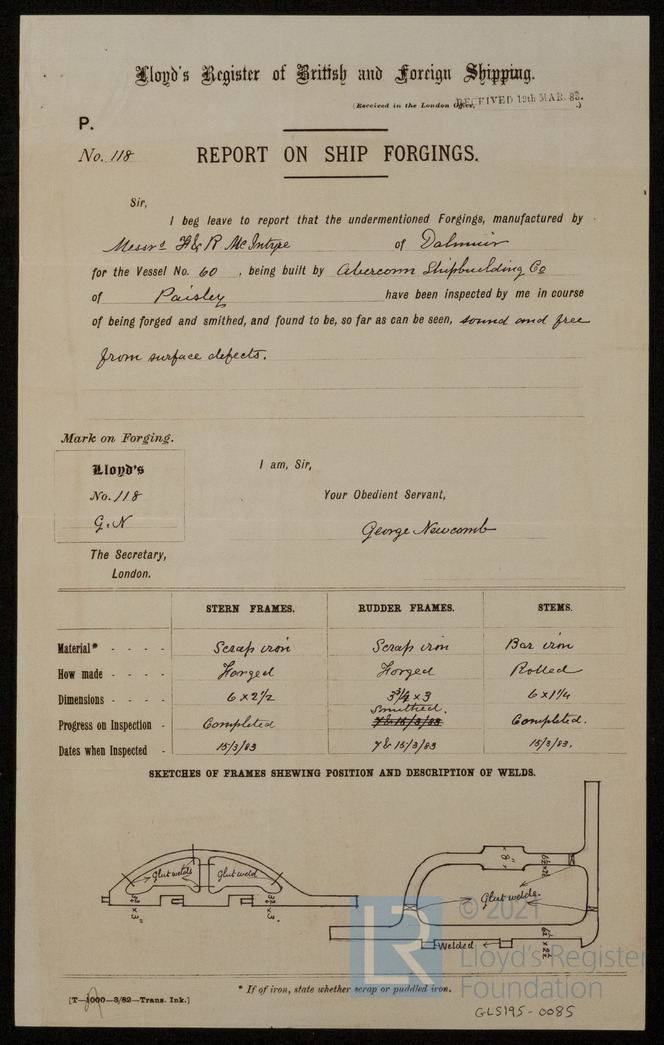 Lloyd's Register of British and Foreign Shipping.
(Received in the London Office, RECEIVED 19th MAR. 83.)
P.
No. 118 REPORT ON SHIP FORGINGS.
Sir,
I beg leave to report that the undermentioned Forgings, manufactured by
Messrs H & R McIntyre of Dalmuir
for the Vessel No. 60, being built by Abercorn Shipbuilding Co
of Paisley have been inspected by me in course
of being forged and smithed, and found to be, so far as can be seen, sound and free
from surface defects.
Mark on Forging.
Lloyd's
No. 118
G.N
I am, Sir,
Your Obedient Servant,
George Newcomb
The Secretary,
London.
STERN FRAMES. RUDDER FRAMES. STEMS.
Material* - - - - Scrap iron Scrap iron Bar iron
How made - - - - Forged Forged Rolled
Dimensions - - - - 6 x 2 1/2 3 3/4 x 3 6 x 1 1/4
Progress on Inspection - Completed Smithed. 7 & 15/3/83 Completed.
Dates when Inspected - 15/3/83 7 & 15/3/83 15/3/83.
SKETCHES OF FRAMES SHEWING POSITION AND DESCRIPTION OF WELDS.
Glut welds
Glut weld
Glut welds.
Welded
* If of iron, state whether scrap or puddled iron.
[T—1000—3/82—Trans. Ink.]
GLS195-0085
LR
© 2021
Lloyd's Register
Foundation